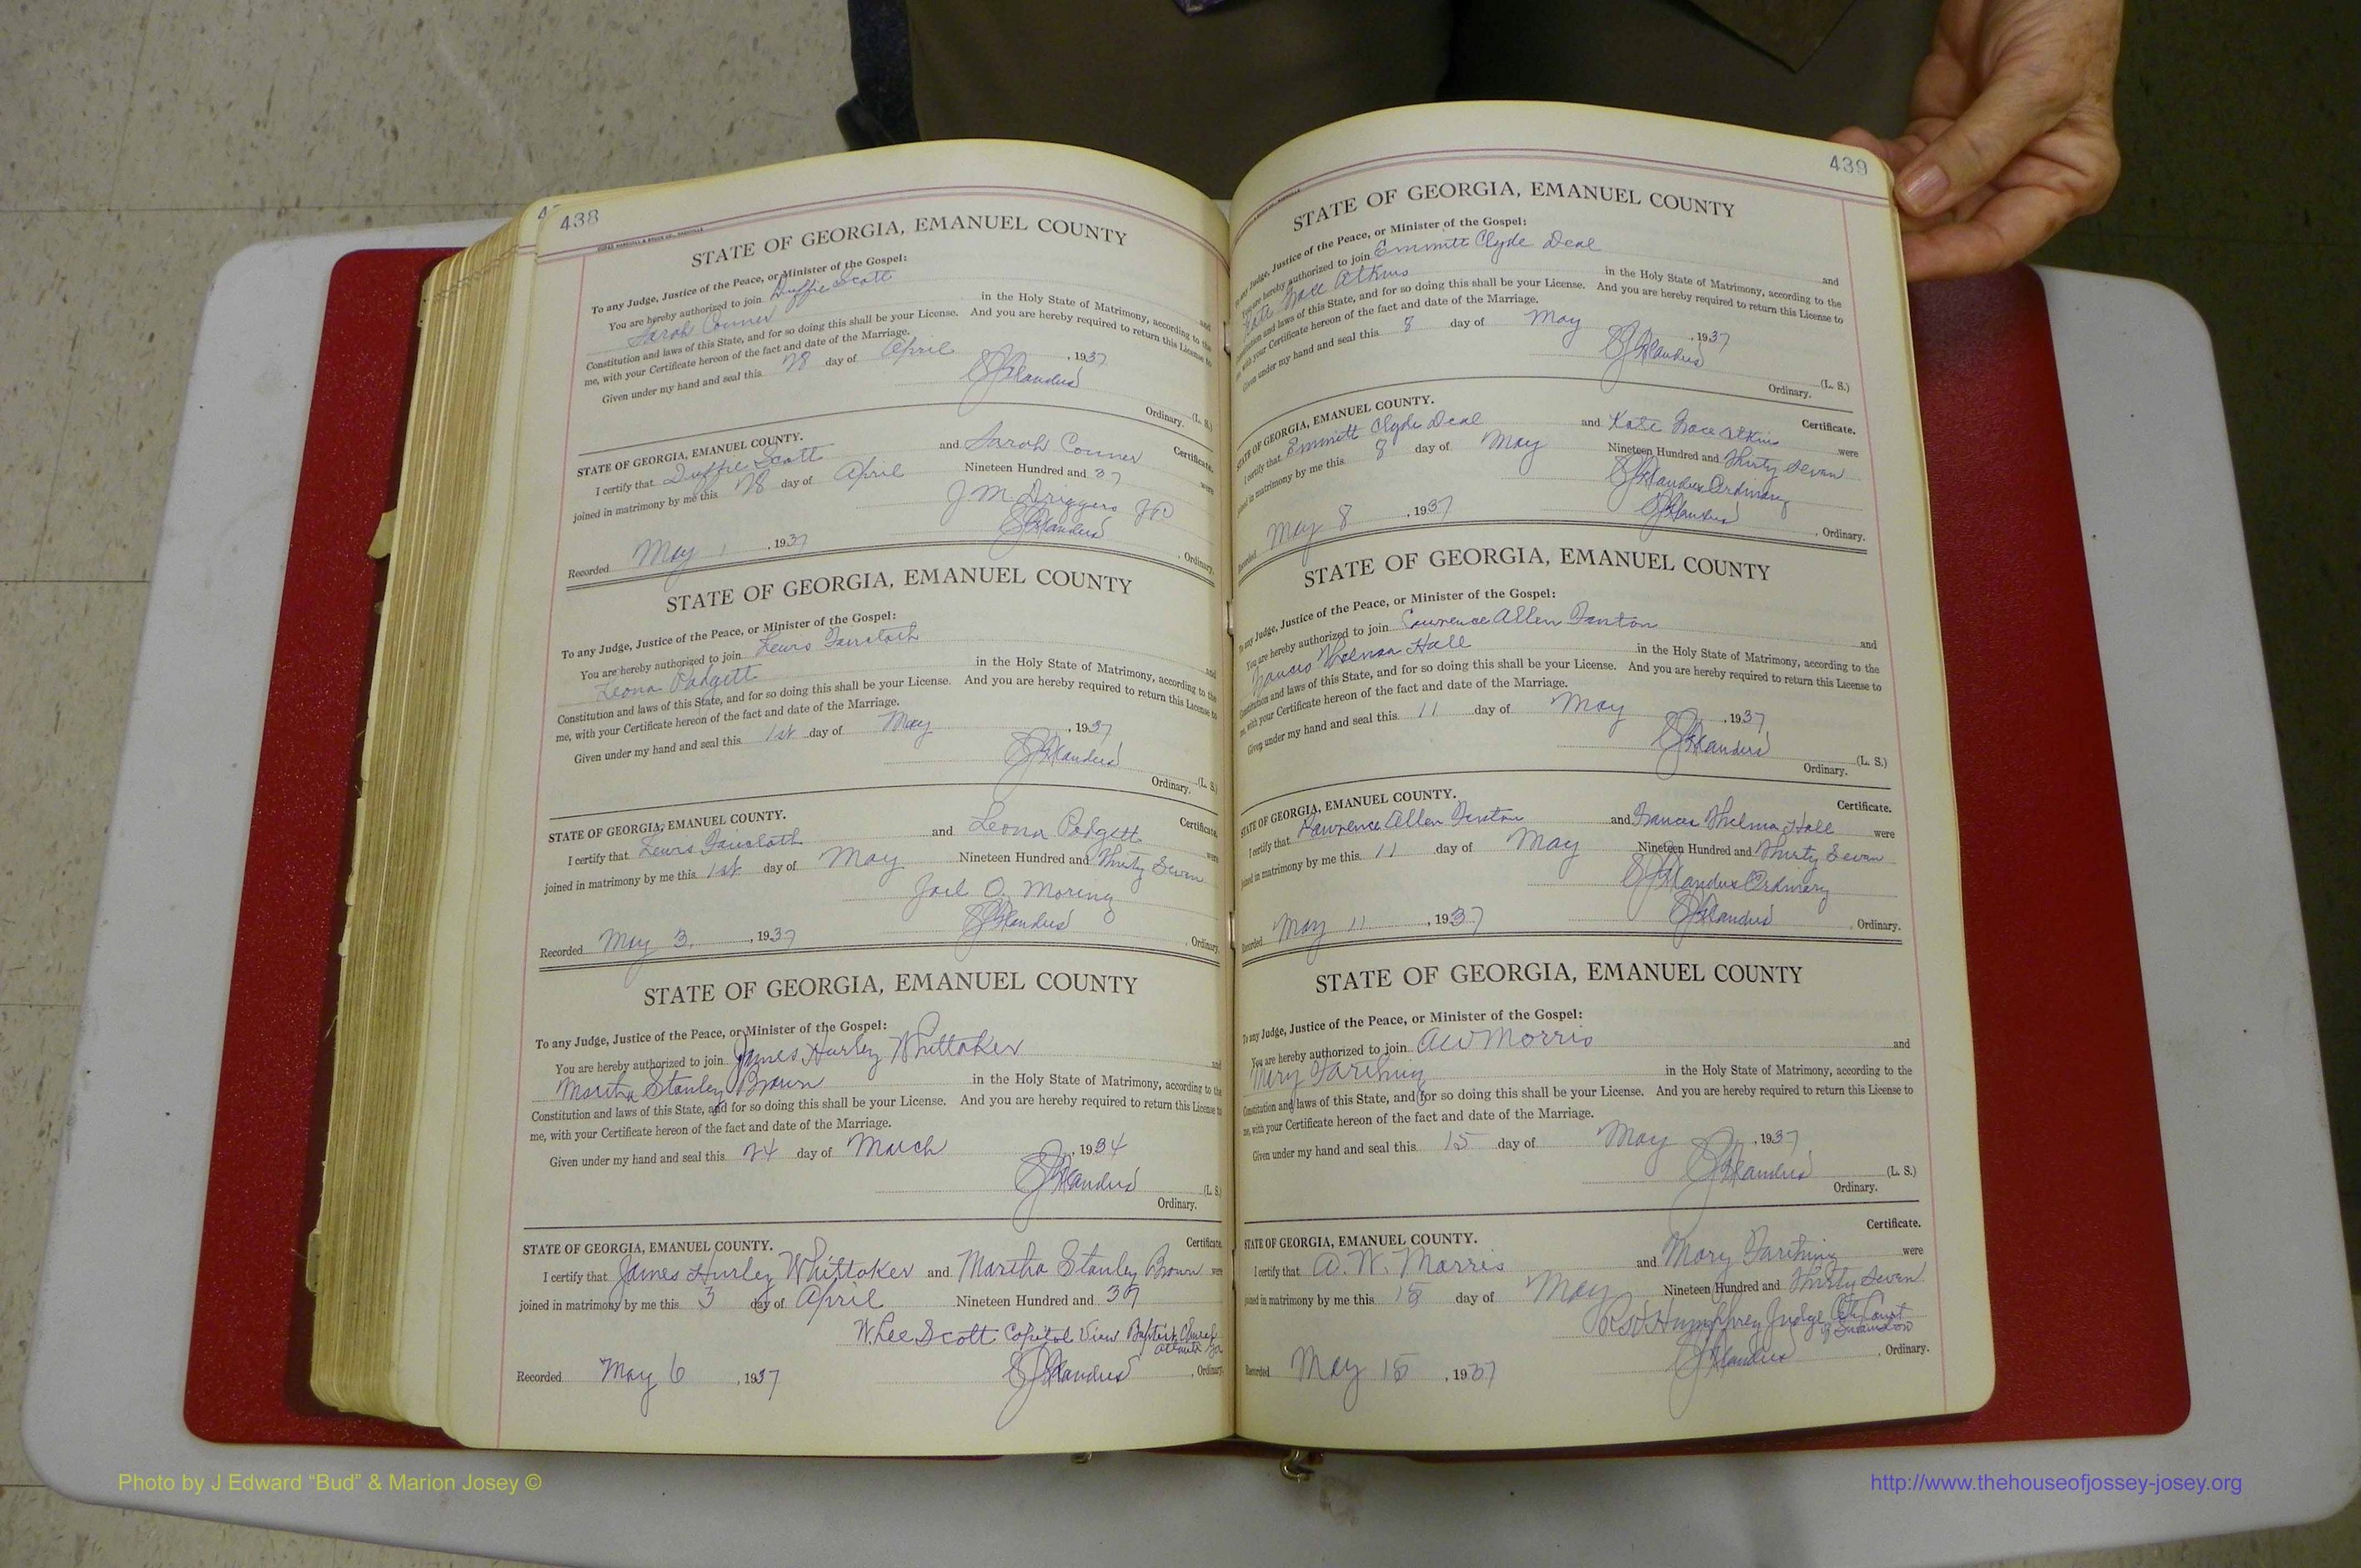 438
STATE OF GEORGIA, EMANUEL COUNTY
To any Judge, Justice of the Peace, or Minister of the Gospel:
You are hereby authorized to join Duffie Scott and
Sarah Conner in the Holy State of Matrimony, according to the
Constitution and laws of this State, and for so doing this shall be your License. And you are hereby required to return this License to
me, with your Certificate hereon of the fact and date of the Marriage.
Given under my hand and seal this 28 day of April, 1937
(L. S.)
Ordinary.
STATE OF GEORGIA, EMANUEL COUNTY.
Certificate.
I certify that Duffie Scott and Sarah Conner were
joined in matrimony by me this 28 day of April Nineteen Hundred and 37
J. M. Driggers JP
Recorded May 1, 1937, Ordinary.
STATE OF GEORGIA, EMANUEL COUNTY
To any Judge, Justice of the Peace, or Minister of the Gospel:
You are hereby authorized to join Lewis Faircloth and
Leona Padgett in the Holy State of Matrimony, according to the
Constitution and laws of this State, and for so doing this shall be your License. And you are hereby required to return this License to
me, with your Certificate hereon of the fact and date of the Marriage.
Given under my hand and seal this 1st day of May, 1937
(L. S.)
Ordinary.
STATE OF GEORGIA, EMANUEL COUNTY.
Certificate.
I certify that Lewis Faircloth and Leona Padgett were
joined in matrimony by me this 1st day of May Nineteen Hundred and Thirty Seven
Joel O. Moring
Recorded May 3, 1937, Ordinary.
STATE OF GEORGIA, EMANUEL COUNTY
To any Judge, Justice of the Peace, or Minister of the Gospel:
You are hereby authorized to join James Hurley Whittaker and
Martha Stanley Brown in the Holy State of Matrimony, according to the
Constitution and laws of this State, and for so doing this shall be your License. And you are hereby required to return this License to
me, with your Certificate hereon of the fact and date of the Marriage.
Given under my hand and seal this 24 day of March, 1934
(L. S.)
Ordinary.
STATE OF GEORGIA, EMANUEL COUNTY.
Certificate
I certify that James Hurley Whittaker and Martha Stanley Brown were
joined in matrimony by me this 3 day of April Nineteen Hundred and 37
W. Lee Scott Capitol View Baptist Church
Atlanta Ga
Recorded May 6, 1937, Ordinary.
439
STATE OF GEORGIA, EMANUEL COUNTY
To any Judge, Justice of the Peace, or Minister of the Gospel:
You are hereby authorized to join Emmitt Clyde Deal and
Kate Grace Atkins in the Holy State of Matrimony, according to the
Constitution and laws of this State, and for so doing this shall be your License. And you are hereby required to return this License to
me, with your Certificate hereon of the fact and date of the Marriage.
Given under my hand and seal this 8 day of May, 1937
(L. S.)
Ordinary.
STATE OF GEORGIA, EMANUEL COUNTY.
Certificate.
I certify that Emmitt Clyde Deal and Kate Grace Atkins were
joined in matrimony by me this 8 day of May Nineteen Hundred and Thirty Seven
Ordinary
Recorded May 8, 1937, Ordinary.
STATE OF GEORGIA, EMANUEL COUNTY
To any Judge, Justice of the Peace, or Minister of the Gospel:
You are hereby authorized to join Lawrence Allen Fenton and
Frances Thelma Hall in the Holy State of Matrimony, according to the
Constitution and laws of this State, and for so doing this shall be your License. And you are hereby required to return this License to
me, with your Certificate hereon of the fact and date of the Marriage.
Given under my hand and seal this 11 day of May, 1937
(L. S.)
Ordinary.
STATE OF GEORGIA, EMANUEL COUNTY.
Certificate.
I certify that Lawrence Allen Fenton and Frances Thelma Hall were
joined in matrimony by me this 11 day of May Nineteen Hundred and Thirty Seven
Ordinary
Recorded May 11, 1937, Ordinary.
STATE OF GEORGIA, EMANUEL COUNTY
To any Judge, Justice of the Peace, or Minister of the Gospel:
You are hereby authorized to join AW Morris and
Mary Farthing in the Holy State of Matrimony, according to the
Constitution and laws of this State, and for so doing this shall be your License. And you are hereby required to return this License to
me, with your Certificate hereon of the fact and date of the Marriage.
Given under my hand and seal this 15 day of May, 1937
(L. S.)
Ordinary.
Certificate.
STATE OF GEORGIA, EMANUEL COUNTY.
I certify that A. W. Morris and Mary Farthing were
joined in matrimony by me this 15 day of May Nineteen Hundred and Thirty Seven
Humphrey Judge City Court
of Swainsboro
Recorded May 15, 1937, Ordinary.
Photo by J Edward “Bud” & Marion Josey ©
http://www.thehouseofjossey-josey.org